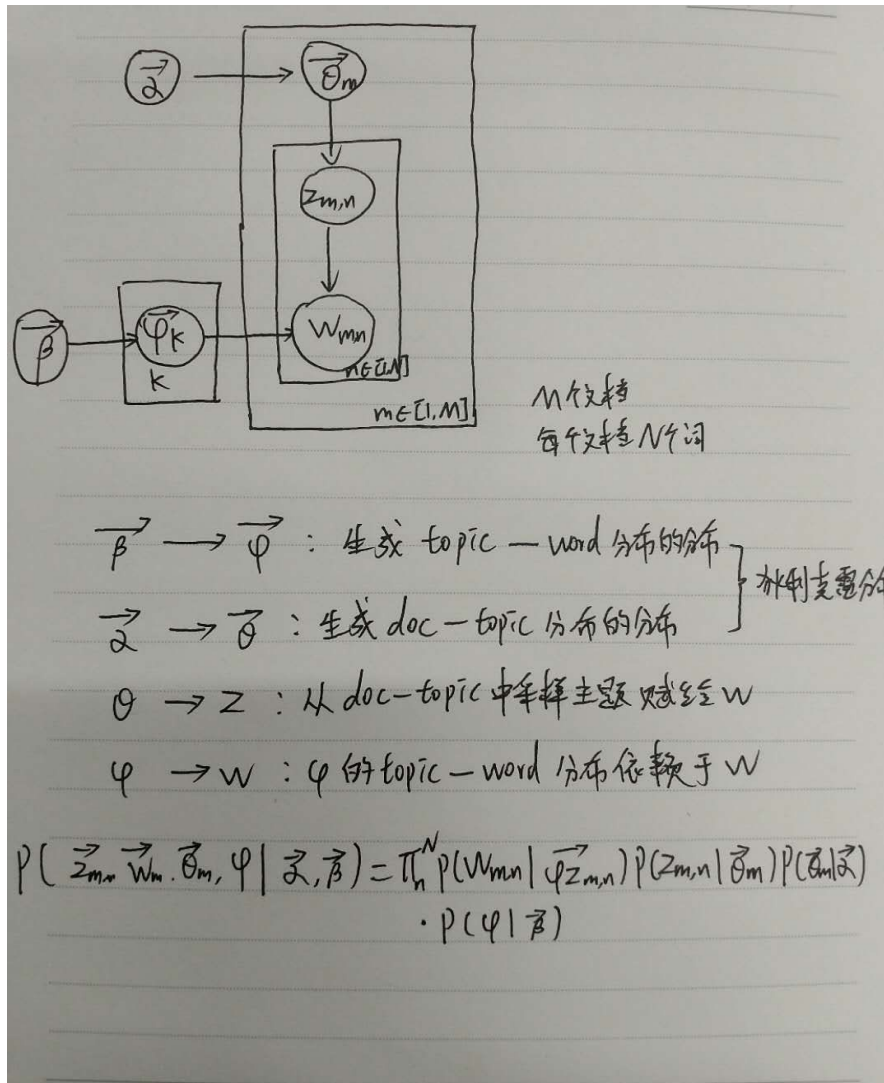 α⃗ → θ⃗m
Zm,n
β⃗ → φ⃗k → Wmn
K
n∈[1,N]
m∈[1,M]
M个文档
每个文档N个词
β⃗ → φ⃗ : 生成 topic — word 分布的分布
α⃗ → θ⃗ : 生成 doc — topic 分布的分布
狄利克雷分布
θ → Z : 从 doc-topic 中采样主题赋给 W
φ → W : φ 的 topic — word 分布依赖于 W
P( Z⃗m,n W⃗m, θ⃗m, φ | α⃗, β⃗) = πₙᴺ P(Wmn | φ⃗Zm,n) P(Zm,n | θ⃗m) P(θ⃗m|α⃗)
· P(φ | β⃗)